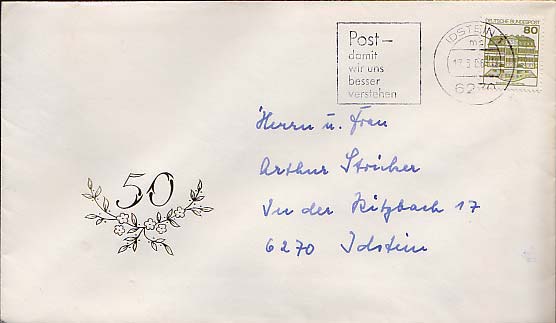 Post –
damit
wir uns
besser
verstehen
IDSTEIN 1
ms
6270
DEUTSCHE BUNDESPOST
80
50
Herrn u. Frau
Arthur Stricher
In der Ritzbach 17
6270 Idstein